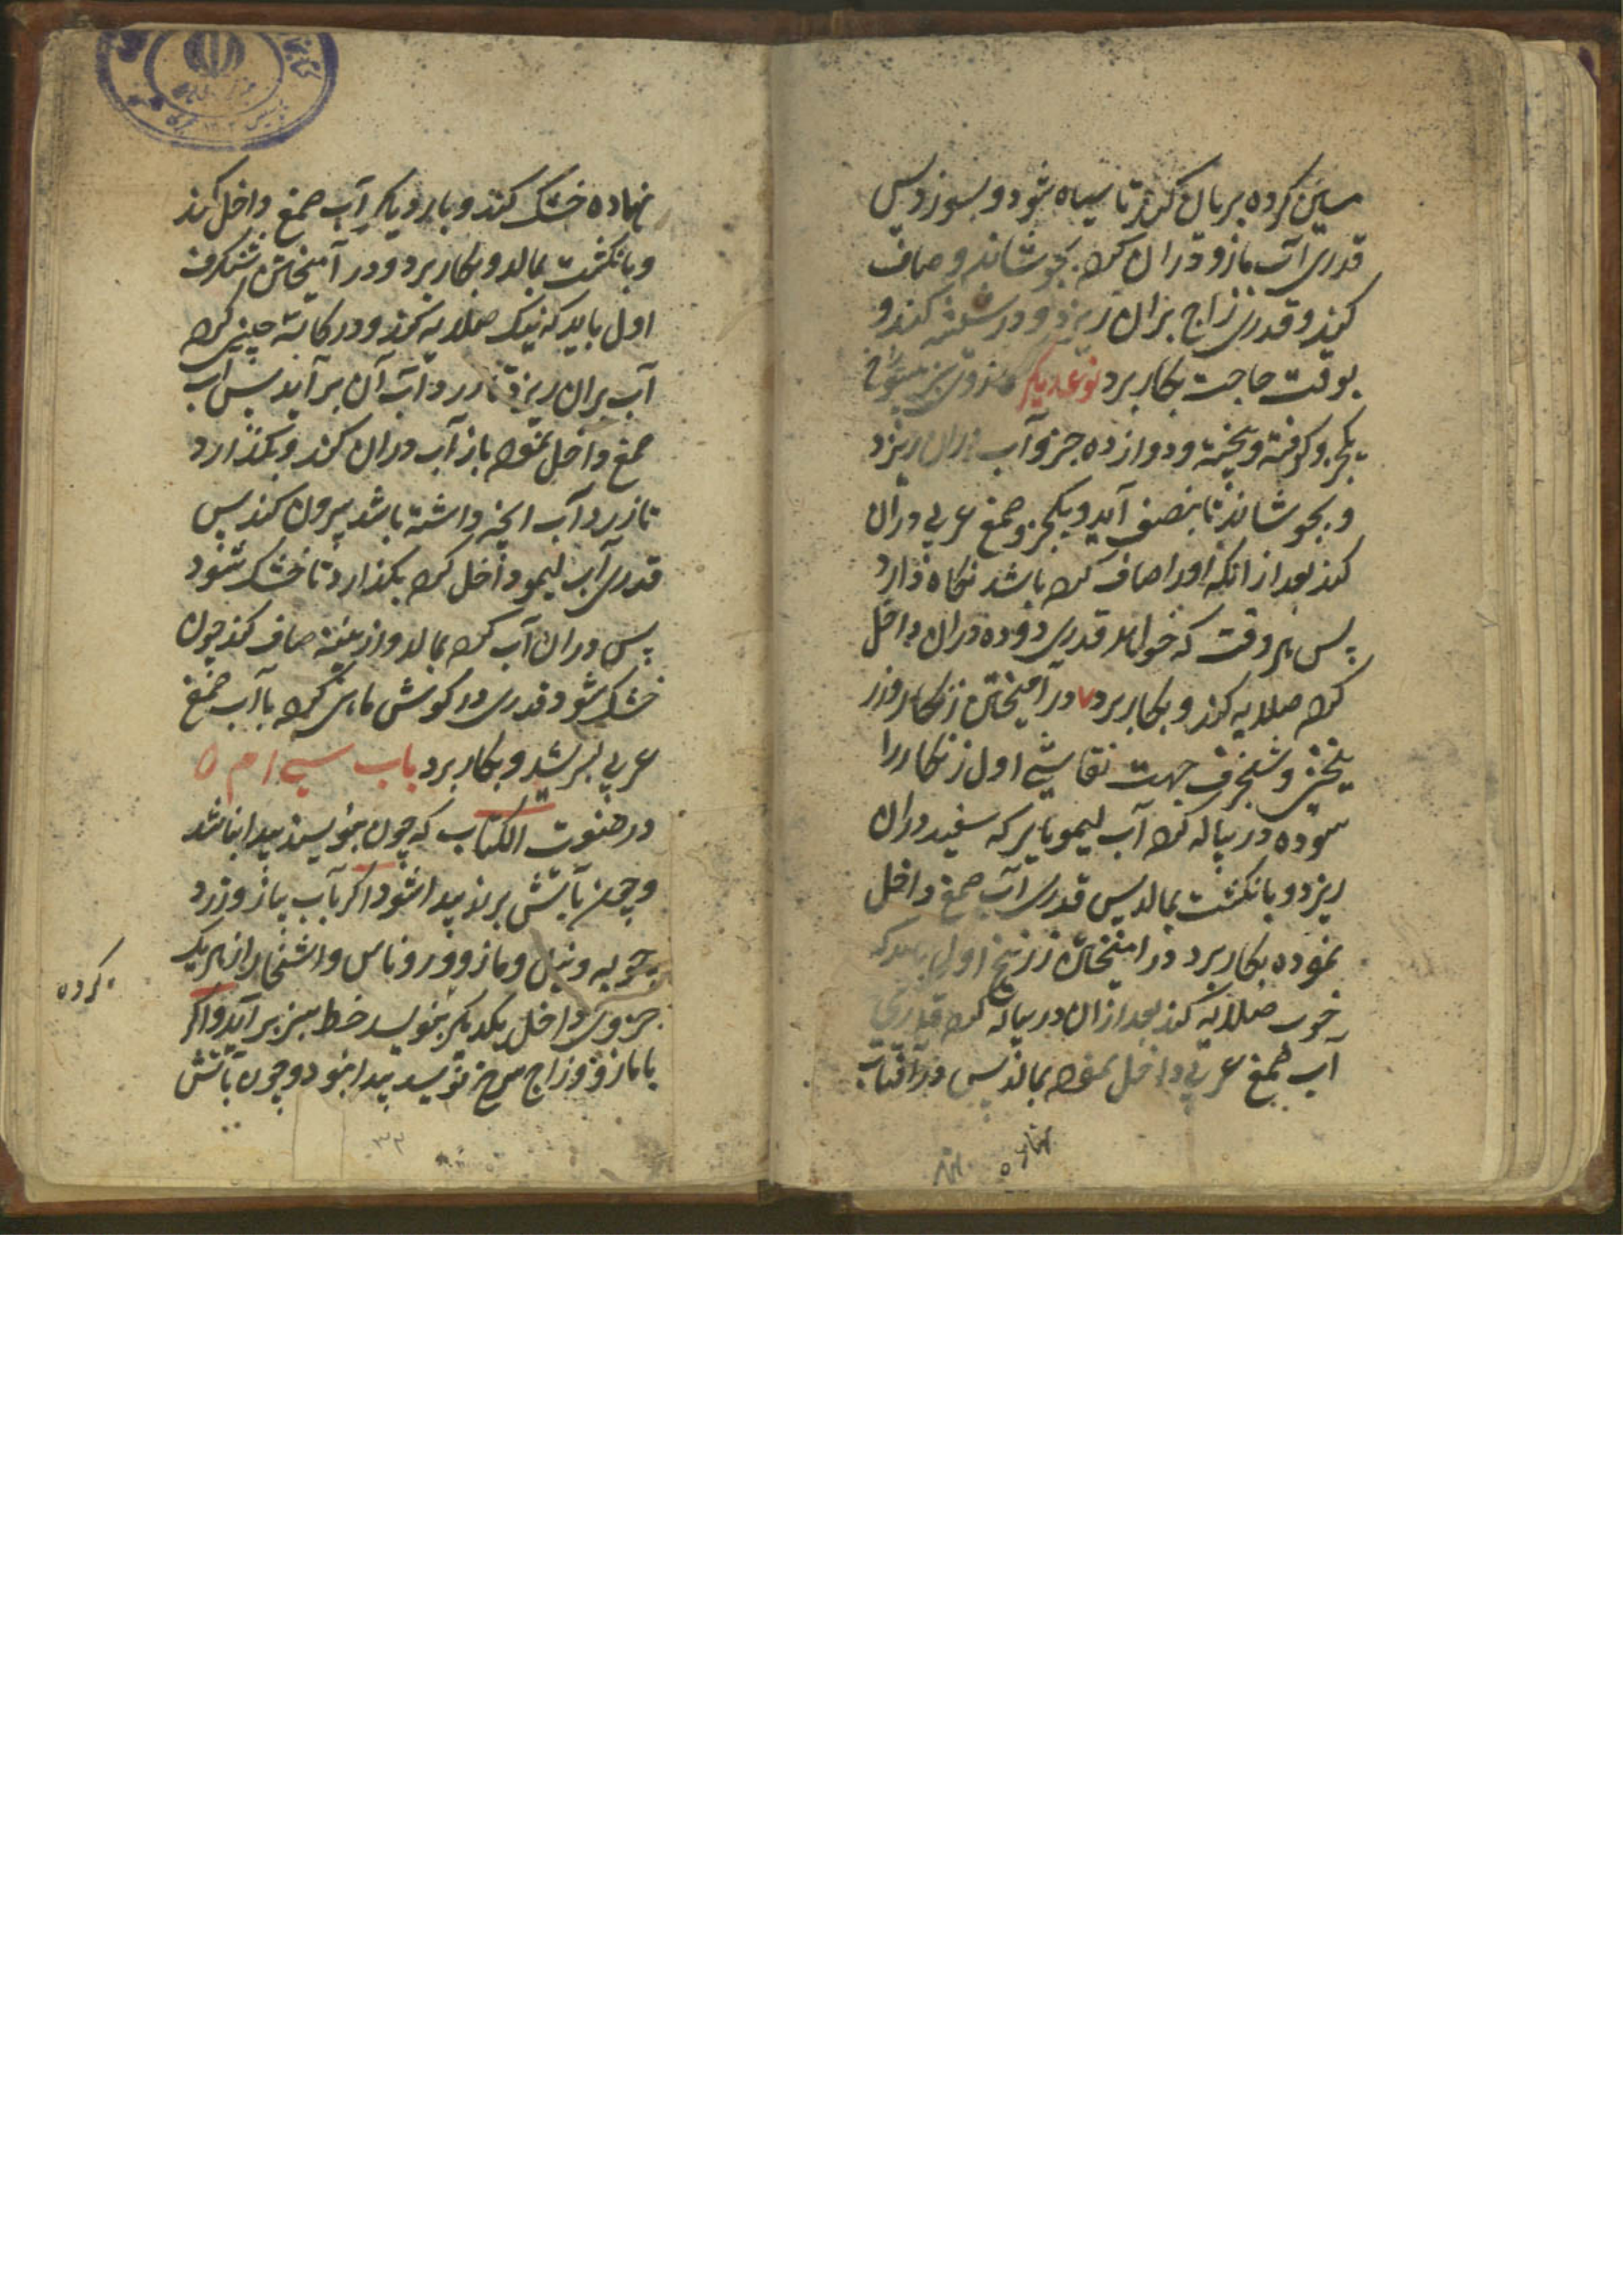 کرده بریان کند تا سیاه شود و بسوزد پس
قدری آب مازو در ان کرده بجوشاند و صاف
کند و قدری زاج بران ریزد و در شیشه کند و
بوقت حاجت بکار برد نوعدیگر
یکجزو کوفته و پیخته و دوازده جزو آب بران ریزد
و بجوشاند تا بنصف آید و یکجزو صمغ عربی دران
کند بعد از انکه اورا صاف کرده باشد نکاه دارد
پس هر وقت که خواهد قدری دوده دران داخل
کرده صلایه کند و بکار برد در آمیختن زنکار و زر
نیخ و شنجرف جهت نقاشی اول زنکار را
سوده در پیاله کرده آب لیمو یا سرکه سفید دران
ریزد و بانکشت بمالد پس قدری آب صمغ داخل
نموده بکار برد در امیختن زرنیخ اول باید که
خوب صلایه کند بعد ازان در پیاله کرده قدری
آب صمغ عربی داخل نموده بمالد پس در افتاب
نهاده
نهاده خشک کند و بار دیکر آب صمغ داخل کند
و بانکشت بمالد و بکار برد و در آمیختن شنکرف
اول باید که نیک صلایه کند و در کاسه چینی کرده
آب بران ریزد تا زرد آب آن بر آید پس آب
صمغ داخل نموده باز آب دران کند و بکذارد
تا زرد آب انچه داشته باشد بیرون کند پس
قدری آب لیمو داخل کرده بکذارد تا خشک شود
پس دران آب کرده بمالد و از پنبه صاف کند چون
خشک شود قدری در کوش ماهی کرده با آب صمغ
عربی بسرشد و بکار برد باب سی ام
در صنوت الکتاب که چون بنویسند پیدا نباشد
و چون بآتش برند پیدا شود اکر بآب پیاز و زرد
چوبه و نیل و مازو و روناس و اشخار از هر یک
کرده
جزوی داخل یکدیکر بنویسد خط سبز بر آید و اکر
با مازو و زاج سرخ نویسد پیدا نبود و چون بآتش
۳۳